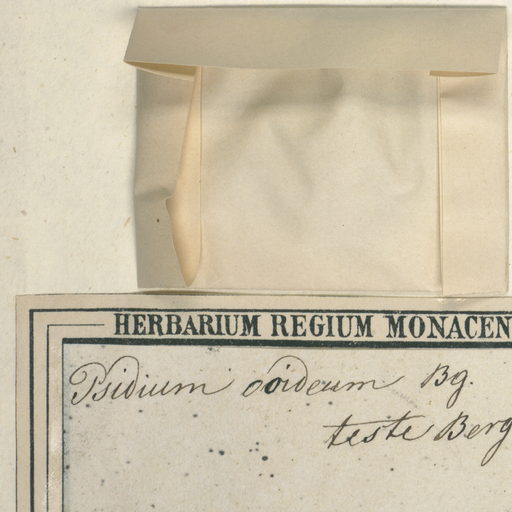 HERBARIUM REGIUM MONACEN
Psidium ooideum Bg.
teste Berg